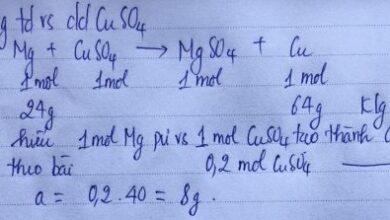 g td vs dd CuSO₄
Mg + CuSO₄ → MgSO₄ + Cu
1mol 1mol 1mol 1mol
24g 64g Klg
1mol Mg pứ vs 1 mol CuSO₄ tạo thành
theo bài 0,2 mol CuSO₄
a = 0,2.40 = 8g.